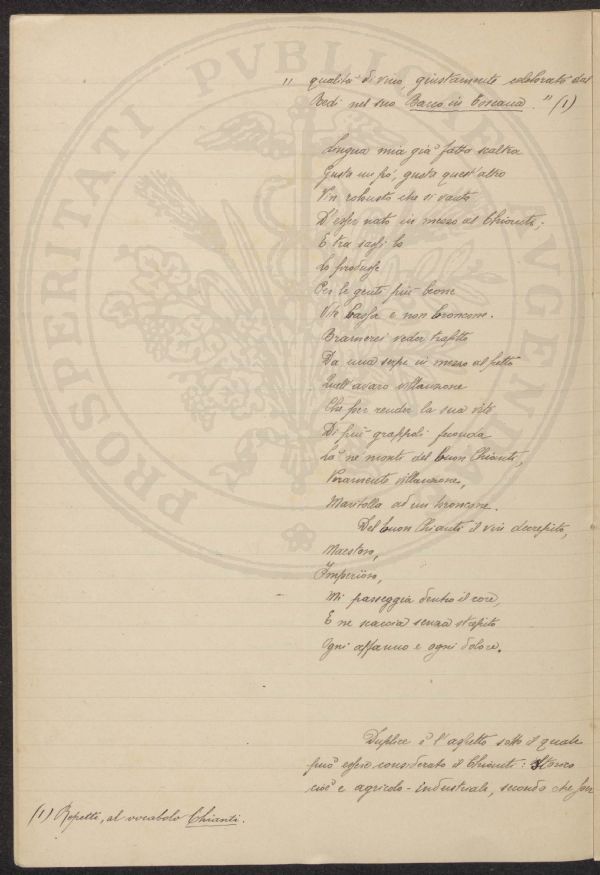 " qualità di vino, giustamente celebrato dal
Redi nel suo Bacco in Toscana." (1)
Lingua mia già fatta scaltra
Gusta un po', gusta quest'altro
Vin robusto che si vanta
D'esser nato in mezzo al Chianti;
E tra sassi lo
Lo produsse
Per le genti più beone
Vite bassa e non broncone.
Bramerei veder trafitto
Da una serpe in mezzo al petto
Quell'avaro villanzone
Che per render la sua vite
Di più grappoli feconda
Là ne' monti del buon Chianti,
Veramente villanzone,
Maritolla ad un broncone.
Del buon Chianti il vin decrepito,
Maestoso,
Imperioso,
Mi passeggia dentro il core,
E ne scaccia senza strepito
Ogni affanno e ogni dolore.
Duplice è l'aspetto sotto il quale
può essere considerato il Chianti: Storico
cioè e agricolo-industriale, secondo che
(1) Repetti, al vocabolo Chianti.
PROSPERITATI PVBLICAE AVGENDAE